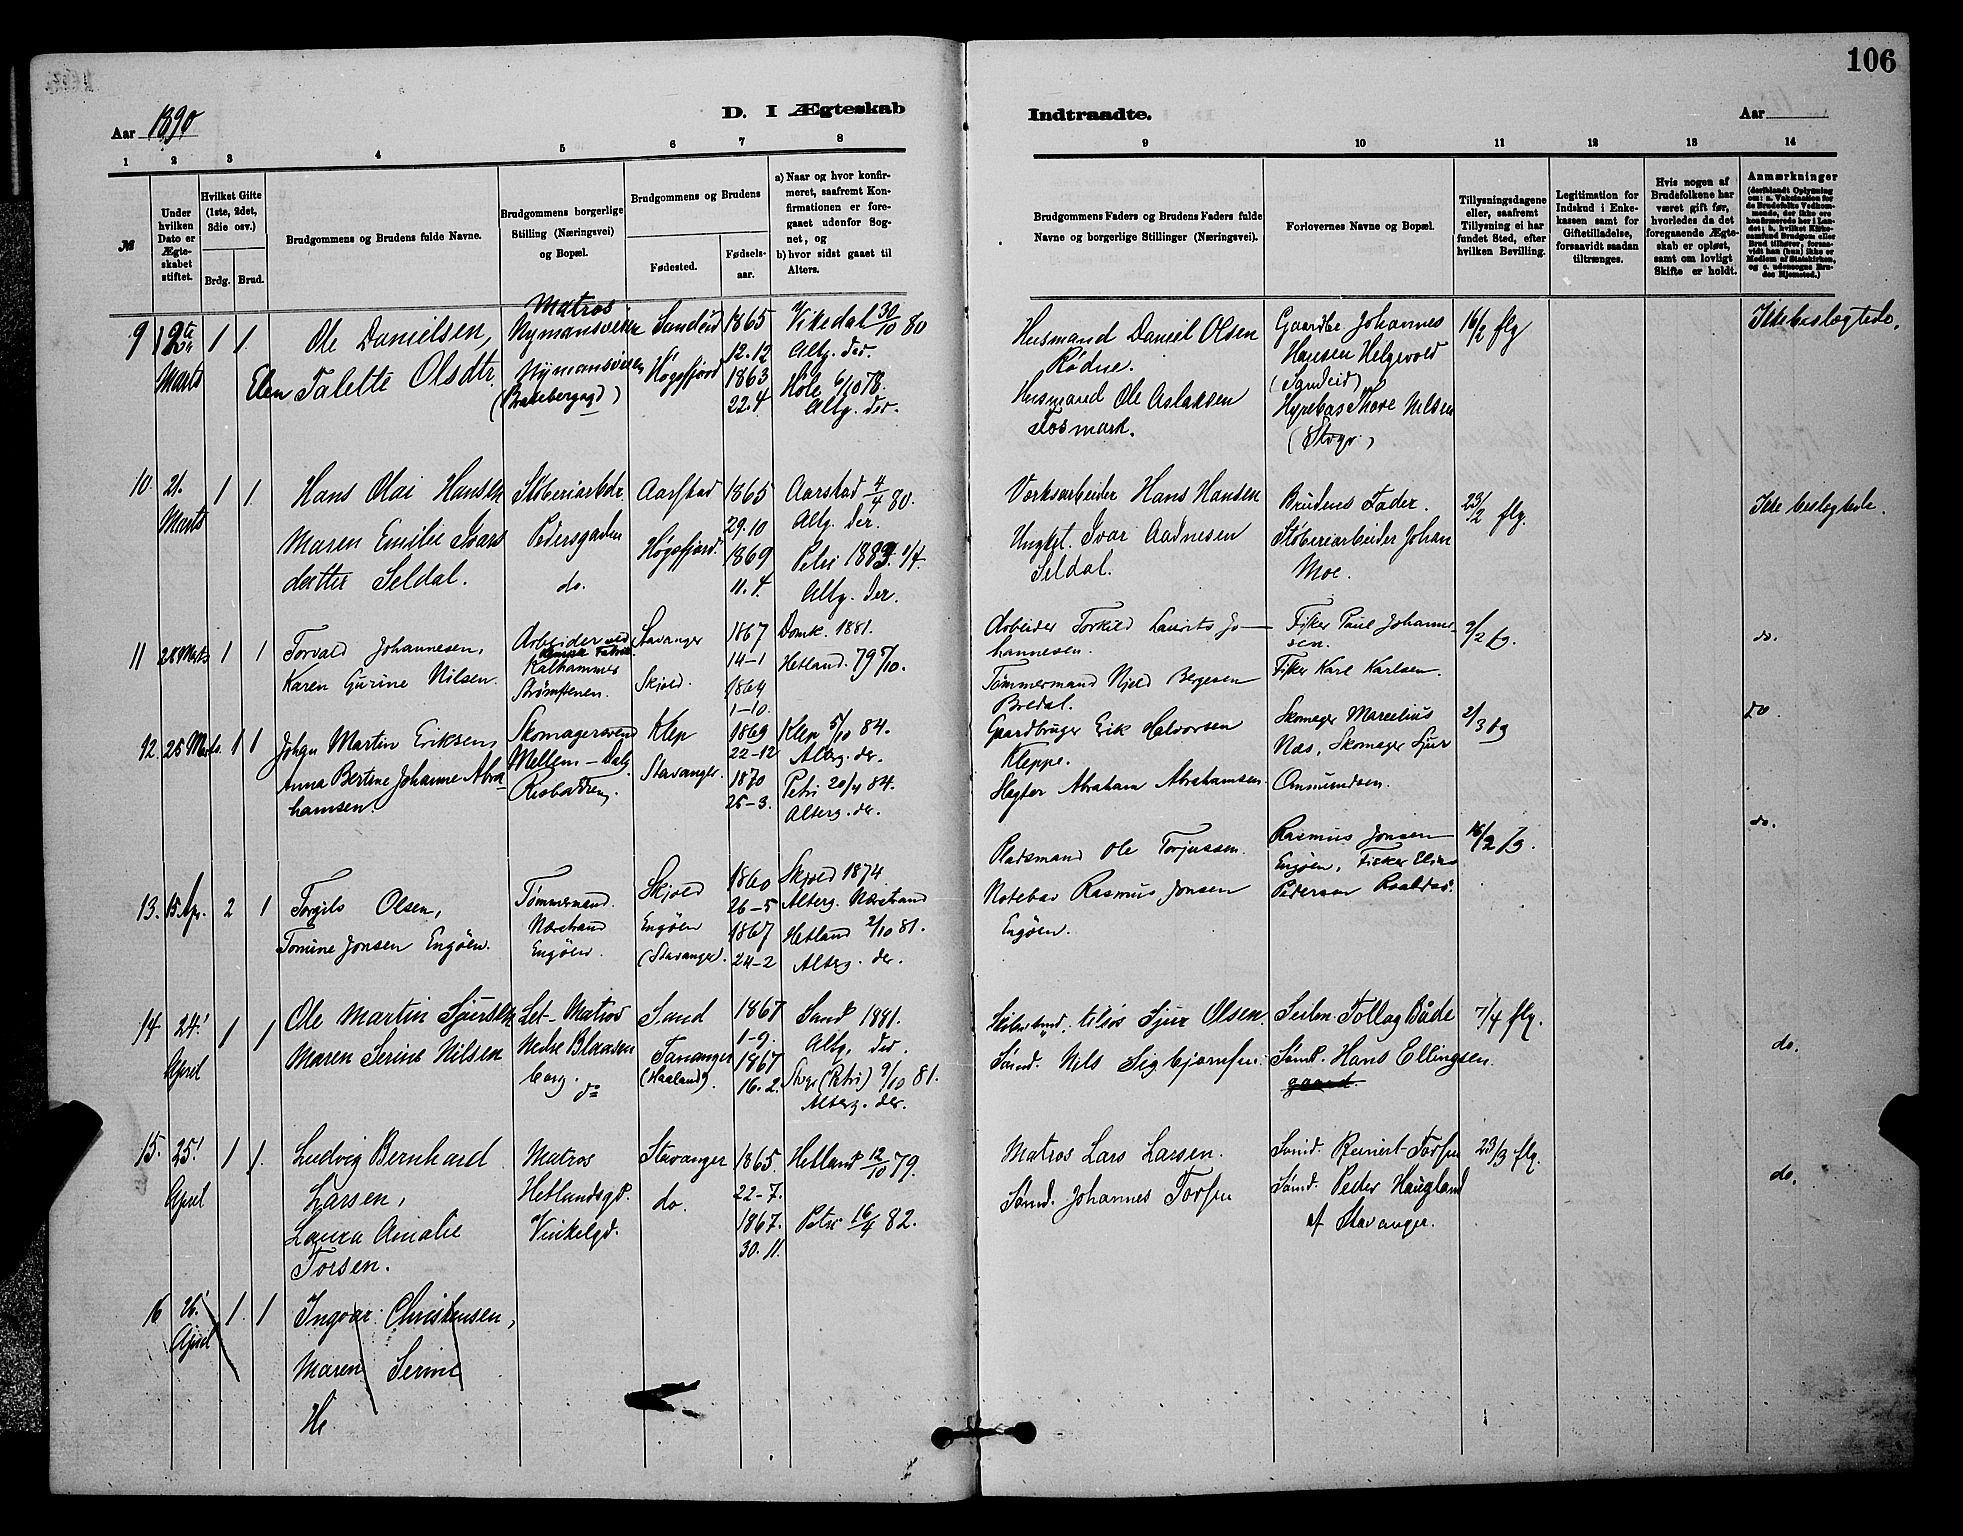 106
Aar 1890
D. I Ægteskab
Indtraadte.
Aar
1 2 3 4 5 6 7 8
9 10 11 12 13 14
№
Under hvilken Dato er Ægteskabet stiftet.
Hvilket Gifte (1ste, 2det, 3die osv.)
Brdg. Brud.
Brudgommens og Brudens fulde Navne.
Brudgommens borgerlige Stilling (Næringsvei) og Bopæl.
Brudgommens og Brudens
Fødested. Fødselsaar.
a) Naar og hvor konfirmeret, saafremt Konfirmationen er foregaaet udenfor Sognet, og
b) hvor sidst gaaet til Alters.
Brudgommens Faders og Brudens Faders fulde Navne og borgerlige Stillinger (Næringsvei).
Forlovernes Navne og Bopæl.
Tillysningsdagene eller, saafremt Tillysning ei har fundet Sted, efter hvilken Bevilling.
Legitimation for Indskud i Enkekassen samt for Giftetilladelse, forsaavidt saadan tiltrænges.
Hvis nogen af Brudefolkene har været gift før, hvorledes da det foregaaende Ægteskab er opløst, samt om lovligt Skifte er holdt.
Anmærkninger
9 12te Marts 1 1.
Ole Danielsen,
Elen Talette Olsdtr.
Matros
Nymansveien
Nymansveien
Sandeid
Høgsfjord
1865
12.12
1863
22.4
Vikedal 30/10 80
Altg. der.
Høle 6/10 78.
Altg. der.
Husmand Daniel Olsen
Rødne.
Husmand Ole Aslaksen
Fosmark.
Gaardbr Johannes
Hansen Helgevold
(Sandeid)
Thore Nilsen
16/2 flg
Ikke beslægtede.
10. 21. Marts 1 1.
Hans Olai Hansen
Maren Emilie Ivars
datter Seldal.
Støberiarbdr.
Pedersgaden
do.
Aarstad
Høgsfjord.
1865
29.10
1869
11.4.
Aarstad 4/4 80.
Altg. der.
Petri
Altg. der.
Værksarbeider Hans Hansen
Ungkl. Ivar Aadnesen
Seldal.
Brudens Fader.
Støberiarbeider Johan
Moe.
23/2 flg.
Ikke beslægtede.
11 28 Marts 1 1
Torvald Johannesen,
Karen Gurine Nilsen.
Arbeider ved
Kalhammer
Strømstenen.
Stavanger
Skjold.
1867
14-1
1864
1-10.
Domk. 1881.
Hetland. 79 5/10.
Arbeider Torkild Laurits Jo-
hannesen.
Tømmermand Njeld Bergesen
Bredal.
Fisker Paul Johanne-
sen.
Fisker Karl Karlsen.
9/2 fg.
do.
12. 28 Marts. 1 1
Johan Martin Eriksen,
Anna Bertine Johanne Abra-
hamsen.
Skomagersvend
Mellem-Dalg
Klep
Stavanger.
1869
22-12
1870
25-3.
Klep 5/10 84.
Alterg. der.
Petri 20/4 84.
Alterg. der.
Gaardbruger Erik Halvorsen
Kleppe.
Slagter Abraham Abrahamsen.
Skomager Marcelius
Næs, Skomager Sjur
Ommundsen.
2/3 fg
do.
13. 15 Apr. 2 1
Torgils Olsen,
Tomine Jonsen Engøen.
Tømmermand.
Nærstrand
Engøen.
Skjold
Engøen
(Stavanger).
1860
26-5
1867
24-2
Skjold 1874
Alterg. Nærstrand
Hetland 2/10 81.
Alterg. der.
Pladsmand Ole Torjussen.
Notebas Rasmus Jonsen
Engøen.
Rasmus Jonsen
Engøen, Fisker Elias
Pedersen Roaldsø.
16/2 fg.
do.
14 24! April 1 1
Ole Martin Sjursen
Maren Serine Nilsen
Let-Matros
Nedre Blaasen
borg. do
Sand
Tananger
(Haaland).
1867
1-9.
1867
16.2.
Sand 1881.
Altg. der.
Stvgr (Petri) 9/10 81.
Alterg. der.
Sjur Olsen.
Sømd. Nils Sigbjørnsen.
Tollag Både
Sømd. Hans Ellingsen.
7/4 flg.
do.
15. 25! April 1 1.
Ludvig Bernhard
Larsen,
Laura Amalie
Torsen.
Matros
Hetlandsgd.
Vinkelgd.
Stavanger
do.
1865.
22-7.
1867.
30.11.
Hetland 12/10 79.
Petri 16/4 82.
Matros Lars Larsen.
Sømd. Johannes Torsen
Sømd. Reinert Torsen
Sømd. Peder Haugland
af Stavanger.
23/3 flg.
do.
16 26! April 1. 1
Ingvar Christensen,
Maren Serine
He